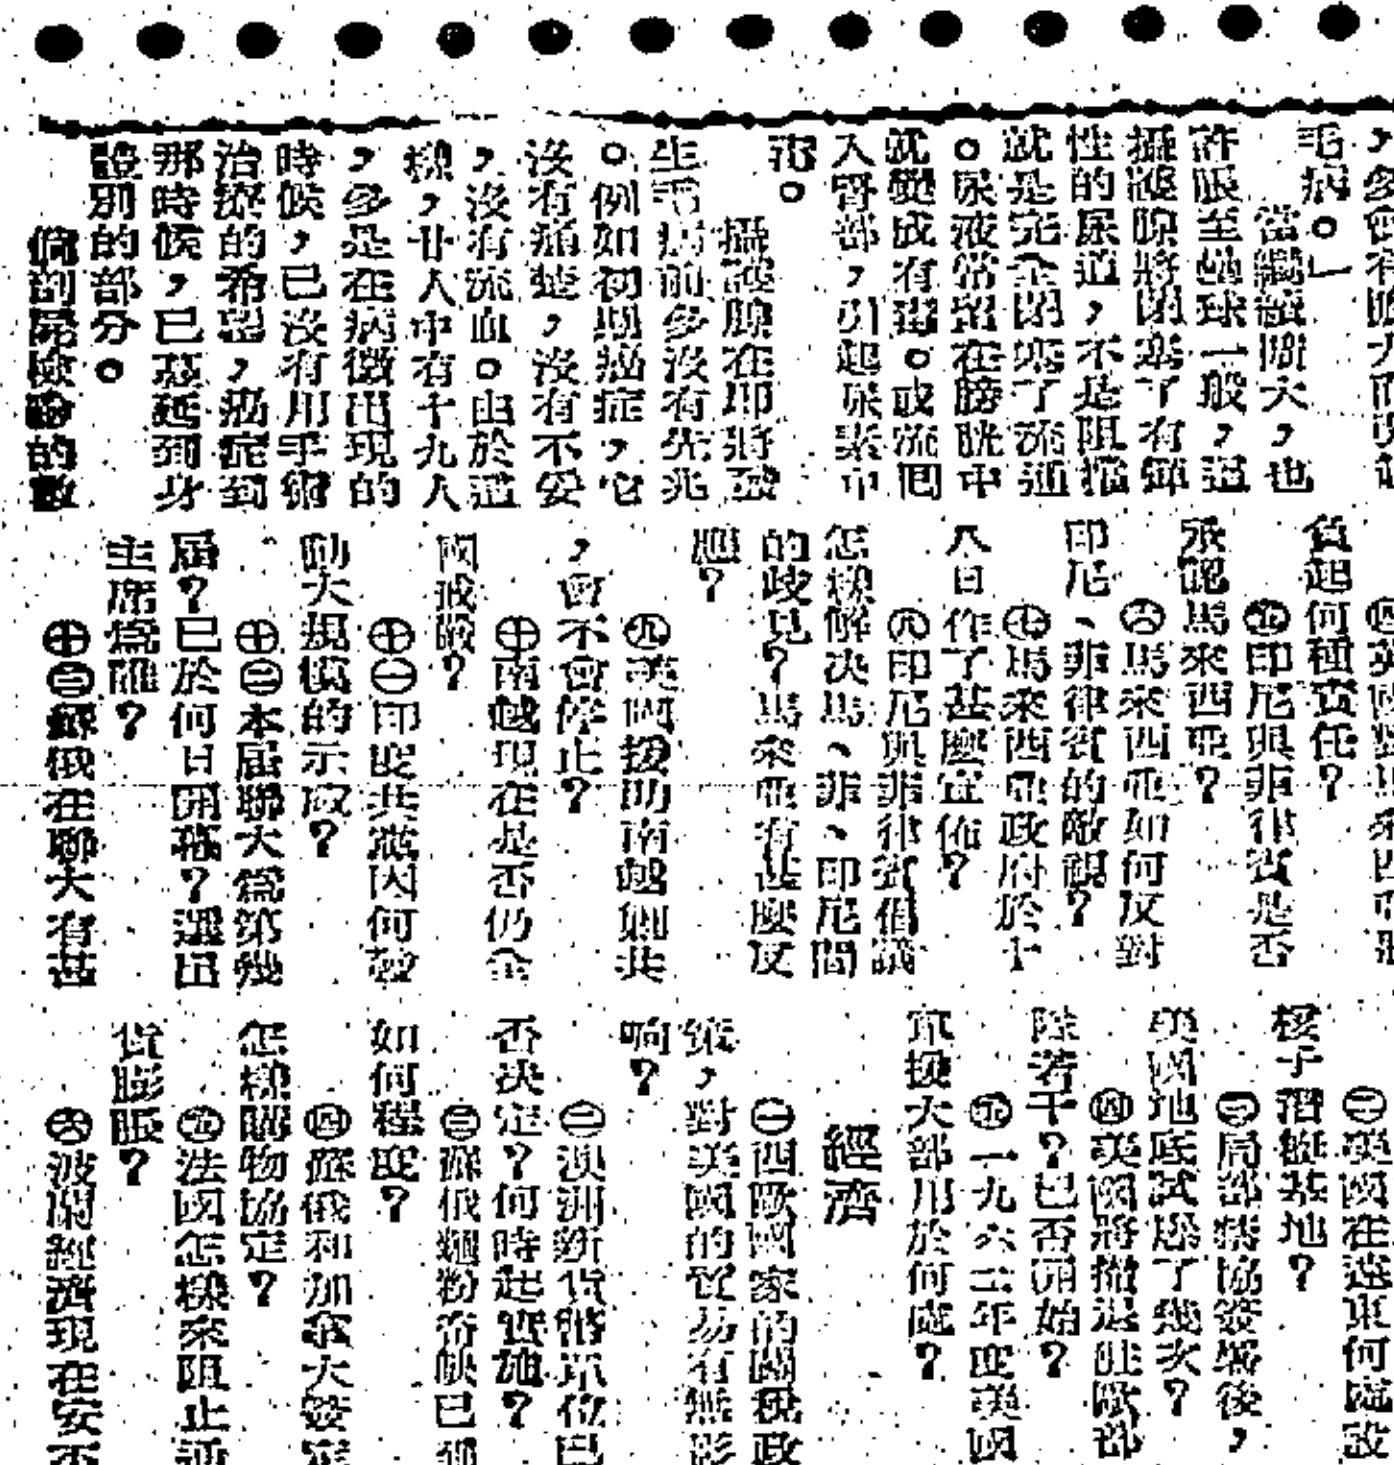 毛病。」
當繼續擴大,也
許脹至壘球一般,這
攝護腺將閉塞了有彈
性的尿道,不是阻擋
就是完全閉塞了流通
。尿液常留在膀胱中
就變成有毒。或流回
入腎部,引起尿素中
毒。
攝護腺在即將發
生毛病前多沒有先兆
。例如初期癌症,它
沒有痛楚,沒有不妥
,沒有流血。由於這
樣,廿人中有十九人
,多是在病徵出現的
時候,已沒有用手術
治療的希望,癌症到
那時候,已蔓延到身
體別的部分。
個剖屍檢驗的數
負起何種責任?
㊄印尼與菲律賓是否
承認馬來西亞?
㊅馬來西亞如何反對
印尼、菲律賓的敵視?
㊆馬來西亞政府於十
八日作了甚麼宣佈?
㊇印尼與菲律賓倡議
怎樣解决馬、菲、印尼間
的歧見?馬來亞有甚麼反
應?
㊈美國援助南越剿共
,會不會停止?
㊉南越現在是否仍全
國戒嚴?
㊉㊀印度共黨因何發
動大規模的示威?
㊉㊁本屆聯大爲第幾
屆?已於何日開幕?選出
主席爲誰?
㊉㊂蘇俄在聯大有甚
㊁美國在遠東何處設
核子潛艇基地?
㊂局部禁協簽署後,
美國地底試爆了幾次?
㊃美國將撤退駐歐部
隊若干?已否開始?
㊄一九六二年度美國
軍援大部用於何處?
經濟
㊀西歐國家的關税政
策,對美國的貿易有無影
响?
㊁澳洲新貨幣單位已
否决定?何時起實施?
㊂蘇俄麵粉奇缺已到
如何程度?
㊃蘇俄和加拿大簽定
怎樣購物協定?
㊄法國怎樣來阻止通
貨膨脹?
㊅波蘭經濟現在安否